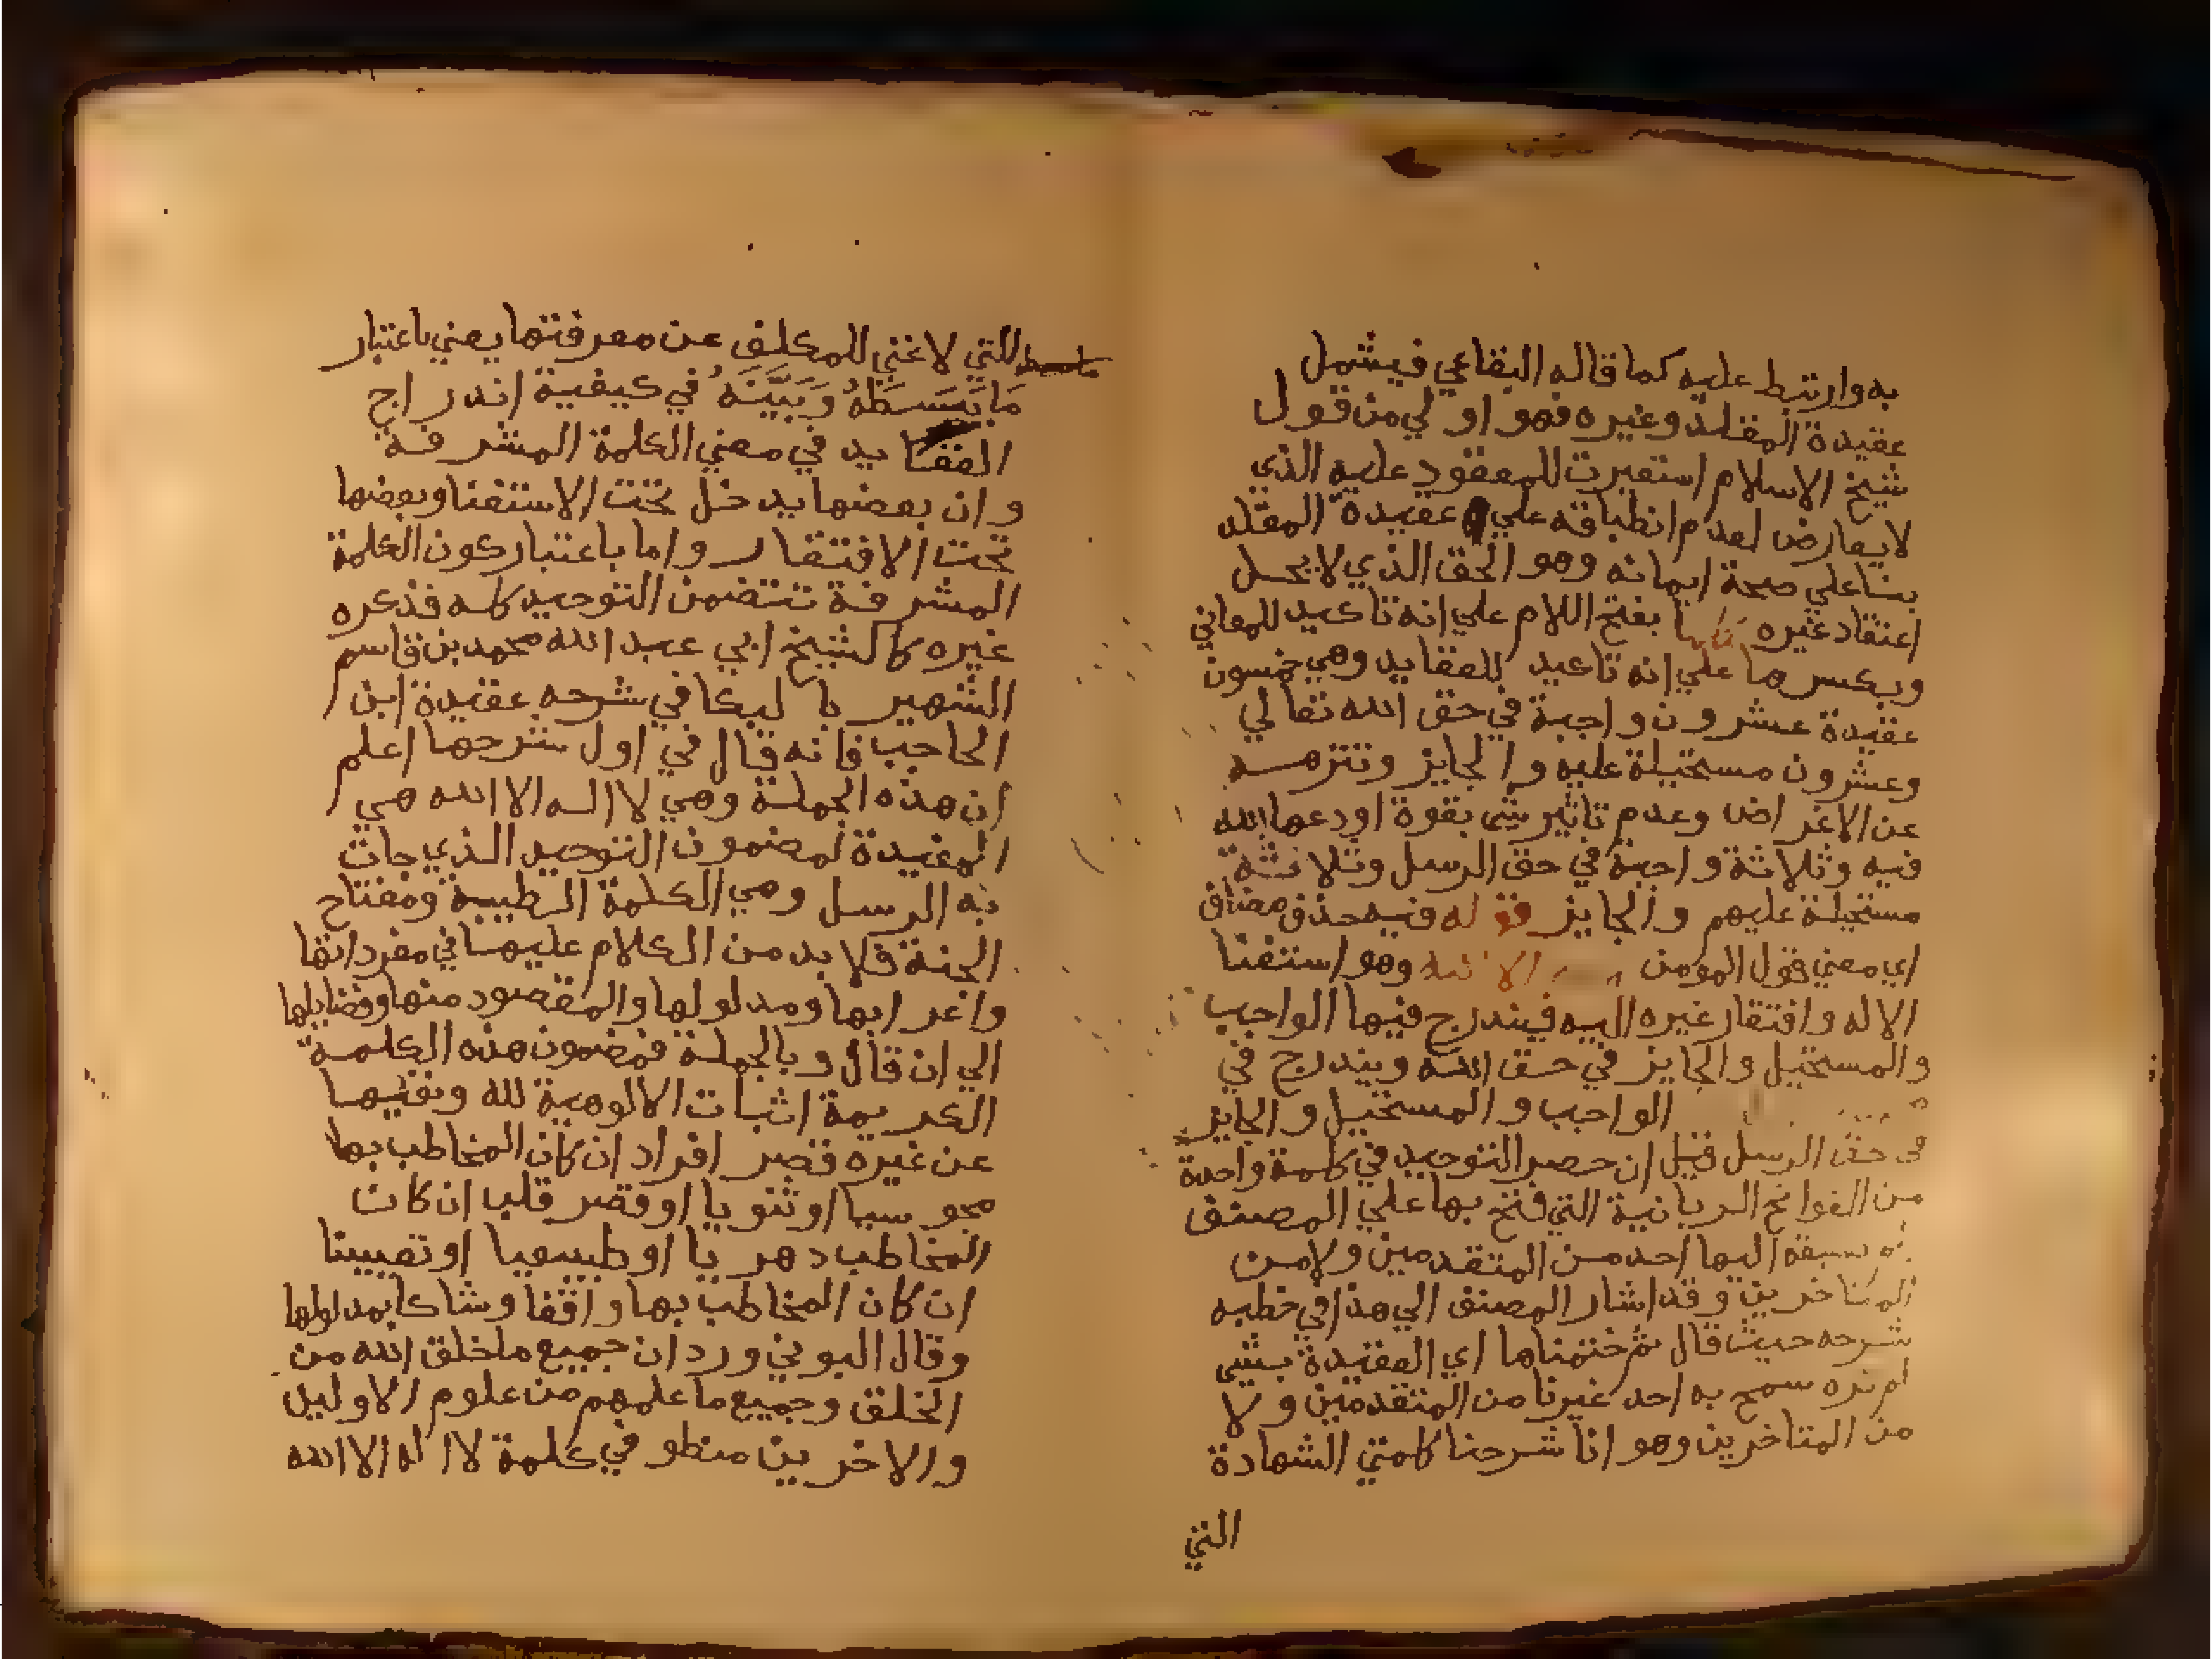 به وارتبط عليه كما قاله البقاعي فيشمل
عقيدة المقلد وغيره فهو اولي من قول
شيخ الاسلام استعيرت للمعقود عليه الذي
لايعارض لعدم انطباقه علي عقيدة المقلد
بنا علي صحة ايمانه وهو الحق الذي لا يحل
اعتقاد غيره كلها بفتح اللام علي انه تاكيد للمعاني
وبكسرها علي انه تاكيد للعقايد وهي خمسون
عقيدة عشرون واجبة في حق الله تعالي
وعشرون مستحيلة عليه والجايز وتنزهه
عن الاغراض وعدم تاثير شي بقوة اودعها الله
فيه وثلاثة واجبة في حق الرسل وثلاثة
مستحيلة عليهم والجايز قوله فيه حذف مضاف
اي معني قول المومن الا الله وهو استغنا
الاله وافتقار غيره اليه فيندرج فيها الواجب
والمستحيل والجايز في حق الله ويندرج في
الواجب والمستحيل والجايز
في حق الرسل قيل ان حصر التوحيد في كلمة واحدة
من الفواتح الربانية التي فتح بها علي المصنف
سبقه اليها احد من المتقدمين ولا من
المتاخرين وقد اشار المصنف الي هذا في خطبه
شرحه حيث قال ثم ختمناها اي العقيدة بشي
لم نره سمح به احد غيرنا من المتقدمين ولا
من المتاخرين وهو انا شرحنا كلمتي الشهادة
التي
للتي لاغني للمكلف عن معرفتها يعني باعتبار
مَا بَسَطَهُ وَبَيَّنَهُ في كيفية اندراج
العقايد في معني الكلمة المشرفة
وان بعضها يدخل تحت الاستغنا وبعضها
تحت الافتقار واما باعتبار كون الكلمة
المشرفة تتضمن التوحيد كله فذكره
غيره كالشيخ ابي عبد الله محمد بن قاسم
الشهير با لبكا في شرحه عقيدة ابن
الحاجب فانه قال في اول شرحها اعلم
ان هذه الجملة وهي لا اله الا الله هي
المفيدة لمضمون التوحيد الذي جات
به الرسل وهي الكلمة الطيبة ومفتاح
الجنة فلا بد من الكلام عليها في مفرداتها
واعرابها ومدلولها والمقصود منها وفضايلها
الي ان قال وبالجملة فمضمون هذه الكلمة
الكريمة اثبات الالوهية لله ونفيها
عن غيره قصر افراد ان كان المخاطب بها
مجوسيا او ثنويا او قصر قلب ان كان
المخاطب دهريا او طبيعيا او تعيينا
ان كان المخاطب بها واقفا وشاكا بمدلولها
وقال البوني ورد ان جميع ما خلق الله من
الخلق وجميع ما علمهم من علوم الاولين
والاخرين منطو في كلمة لا اله الا الله